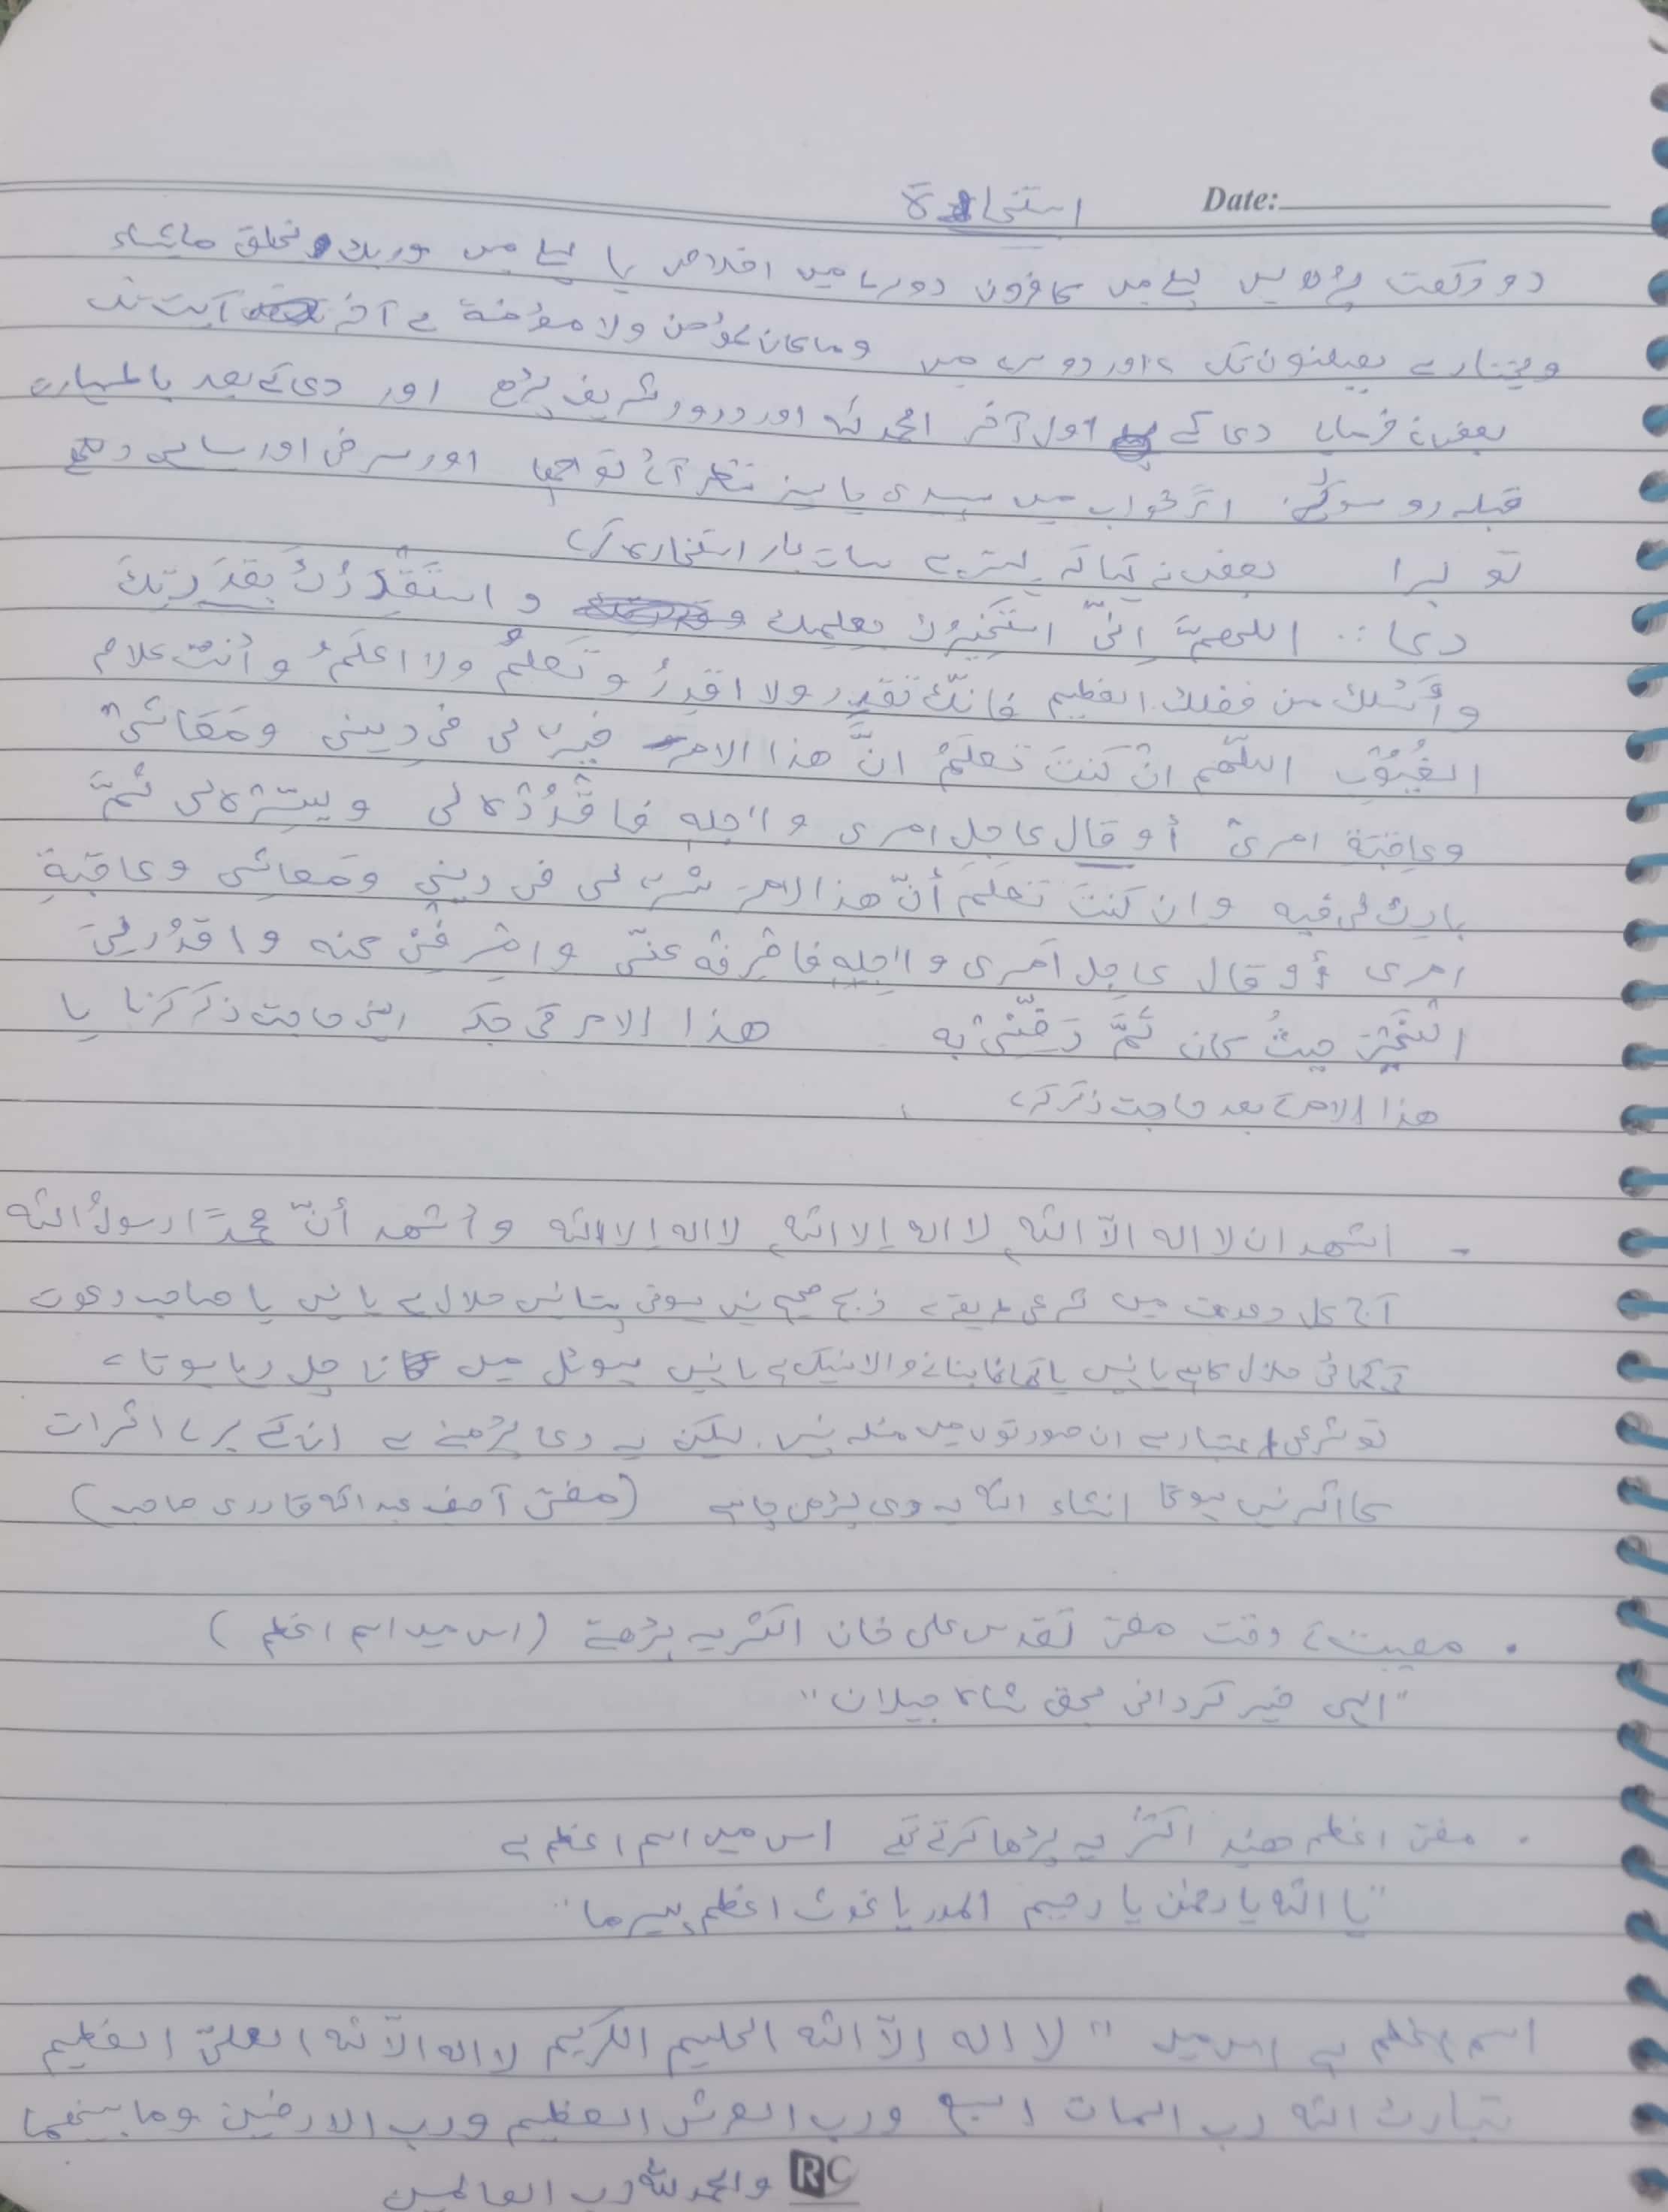 Date:
استخارۃ
دو رکعت پڑھیں پہلے میں کافرون دوسرے میں اخلاص یا پہلے میں وربك يخلق ما يشاء
ويختار سے يعلنون تک اور دوسرے میں وما كان لمؤمن ولا مؤمنة سے آخر آیت تک
بعض نے فرمایا دعا کے اول آخر الحمد للہ اور درود شریف پڑھے اور دعا کے بعد باطہارت
قبلہ رو سوئے اگر خواب میں سپیدی یا سبز نظر آئے تو اچھا اور سرخی اور سیاہی دیکھے
تو برا بعض نے کہا کہ بہتر ہے سات بار استخارہ کرے
دعا : اللهمّ اِنّی استَخِیرُك بعلمك و استَقْدِرُكَ بقدرتِكَ
وأَسْئلك من فضلك العظيم فانّك تقدِر ولا اقدِرُ وتَعلَمُ ولا اعلَمُ وأنت علام
الغُيُوْبِ اللّهم انْ كنتَ تَعلَمُ انَّ هذا الامر خیر لی فی دینی ومَعَاشیْ
وعاقبَة امریْ أو قال عاجل امری واٰجله فاقْدُرْہ لی ویسّرْہ لی ثُمَّ
بارِك لی فیه وان كنتَ تَعلَم أنّ هذا الامر شرّ لی فی دِینِی ومَعاشی وعاقبةِ
امری أو قال عاجل اَمری واٰجله فاصْرِفْه عنّی واصْرِفْنِیْ عنه واقدُرْ لِیَ
الْخَیْرَ حیثُ کان ثُمَّ رَضِّنِیْ به هذا الامر کی جگہ اپنی حاجت ذکر کرنا یا
هذا الامر کے بعد حاجت ذکر کرے
- اشهد ان لا اله الّا الله لا اله الا الله لا اله الا الله و اشهد أنّ محمداً رسولُ الله
آج کل دعوت میں شرعی طریقے سے ذبح صحیح نہیں ہوتی پتا نہیں حلال ہے یا نہیں یا صاحب دعوت
کی کمائی حلال کا ہے یا نہیں یا کھانا بنانے والا نیک ہے یا نہیں ہوٹل میں گانا چل رہا ہوتا ہے
تو شرعی اعتبار سے ان صورتوں میں منع نہیں لیکن یہ دعا پڑھنے سے ان کے برے اثرات
کا اثر نہیں ہوگا انشاء اللہ یہ دعا پڑھنی چاہیے (مفتی آصف عبداللہ قادری صاحب)
• مصیبت کے وقت مفتی تقدس علی خان اکثر یہ پڑھتے (اس میں اسم اعظم)
"الہی خیر گردانی بحق شاہ جیلان"
• مفتی اعظم ھند اکثر یہ پڑھا کرتے تھے اس میں اسم اعظم ہے
"یا اللہ یا رحمٰن یا رحیم المدد یا غوث اعظم پیر ما"
اسم اعظم ہے اس میں "لا اله الّا الله الحليم الكريم لا اله الّا الله العلیّ العظيم
تبارك الله رب السمات السبع ورب العرش العظيم ورب الارضین وما بینهما
والحمد لله رب العالمین
RC